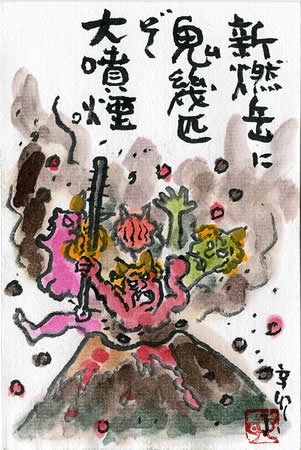 新燃岳に
鬼幾匹
ぞ
大噴煙